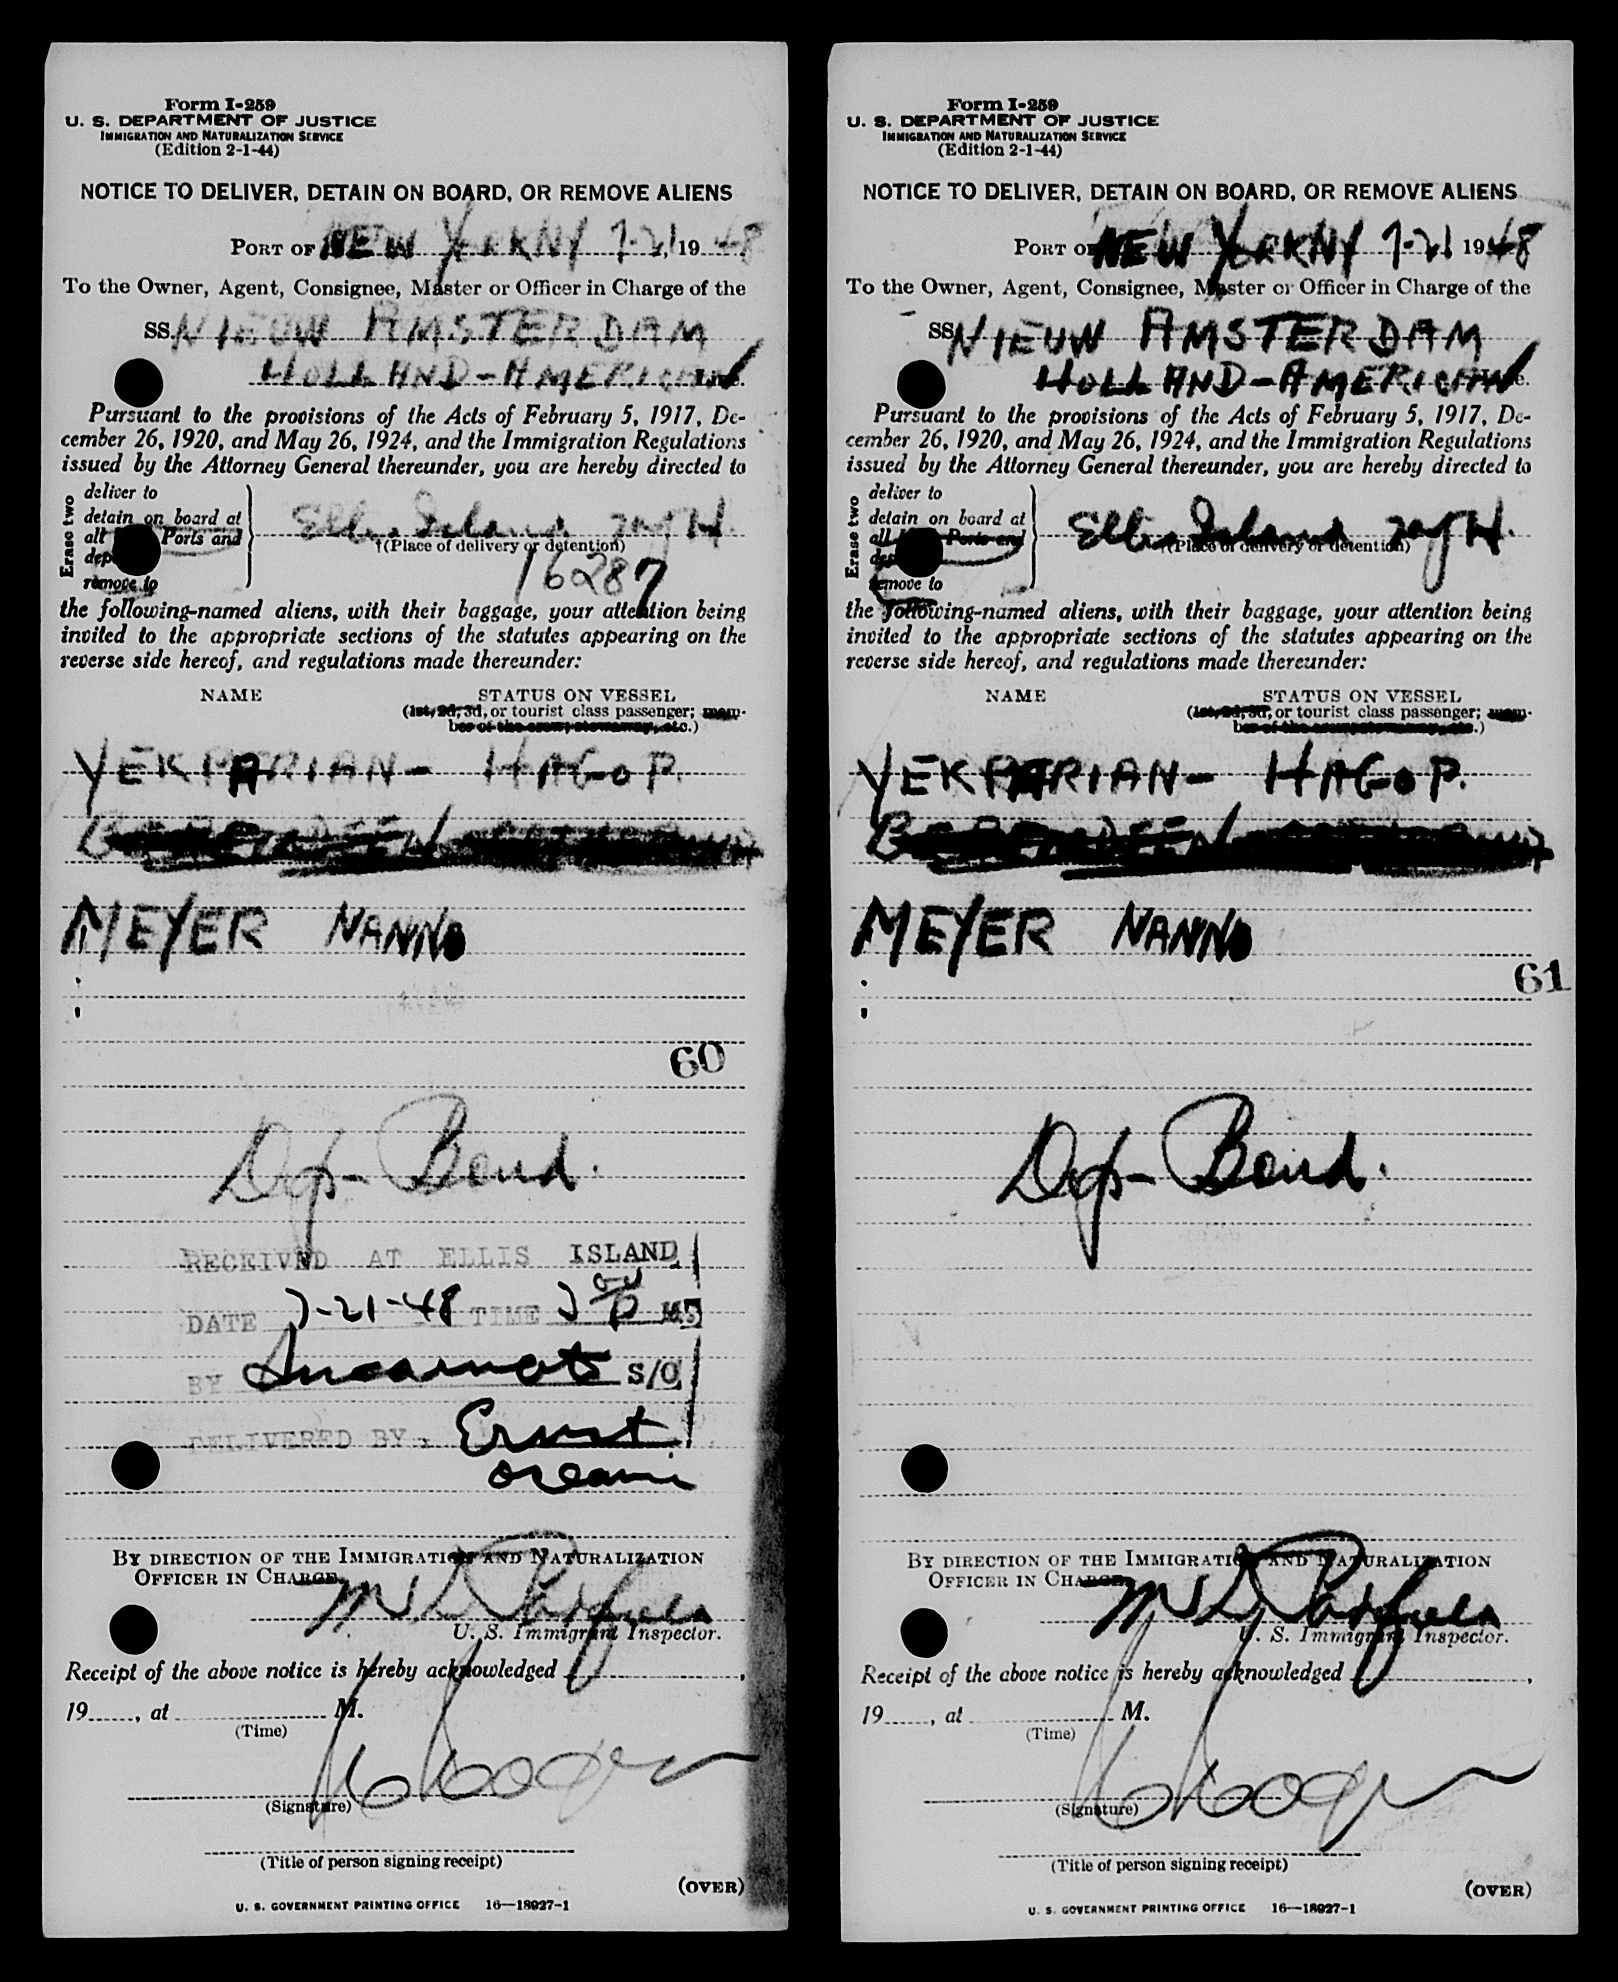 Form I-259
U. S. DEPARTMENT OF JUSTICE
IMMIGRATION AND NATURALIZATION SERVICE
(Edition 2-1-44)
NOTICE TO DELIVER, DETAIN ON BOARD, OR REMOVE ALIENS
PORT OF NEW YORK NY 7-21, 1948
To the Owner, Agent, Consignee, Master or Officer in Charge of the
SS. NIEUW AMSTERDAM
HOLLAND-AMERICAN Line.
Pursuant to the provisions of the Acts of February 5, 1917, De-
cember 26, 1920, and May 26, 1924, and the Immigration Regulations
issued by the Attorney General thereunder, you are hereby directed to
Erase two
deliver to
detain on board at
all Ports and
remove to
Ellis Island NYH.
†(Place of delivery or detention)
16287
the following-named aliens, with their baggage, your attention being
invited to the appropriate sections of the statutes appearing on the
reverse side hereof, and regulations made thereunder:
NAME STATUS ON VESSEL
(1st, 2d, 3d, or tourist class passenger; mem-
ber of the crew, stowaway, etc.)
YEKPARIAN- HAGOP.
MEYER NANNO
60
Dep- Bond.
RECEIVED AT ELLIS ISLAND
DATE 7-21-48 TIME P M
BY S/O
DELIVERED BY. Ernst
BY DIRECTION OF THE IMMIGRATION AND NATURALIZATION
OFFICER IN CHARGE
U. S. Immigrant Inspector.
Receipt of the above notice is hereby acknowledged ,
19 , at M.
(Time)
(Signature)
(Title of person signing receipt)
(OVER)
U. S. GOVERNMENT PRINTING OFFICE 16—18927-1
Form I-259
U. S. DEPARTMENT OF JUSTICE
IMMIGRATION AND NATURALIZATION SERVICE
(Edition 2-1-44)
NOTICE TO DELIVER, DETAIN ON BOARD, OR REMOVE ALIENS
PORT OF NEW YORK NY 7-21 1948
To the Owner, Agent, Consignee, Master or Officer in Charge of the
SS NIEUW AMSTERDAM
HOLLAND-AMERICAN Line.
Pursuant to the provisions of the Acts of February 5, 1917, De-
cember 26, 1920, and May 26, 1924, and the Immigration Regulations
issued by the Attorney General thereunder, you are hereby directed to
Erase two
deliver to
detain on board at
all Ports and
remove to
Ellis Island NYH.
†(Place of delivery or detention)
the following-named aliens, with their baggage, your attention being
invited to the appropriate sections of the statutes appearing on the
reverse side hereof, and regulations made thereunder:
NAME STATUS ON VESSEL
(1st, 2d, 3d, or tourist class passenger; mem-
ber of the crew, stowaway, etc.)
YEKPARIAN- HAGOP.
MEYER NANNO
61
Dep- Bond.
BY DIRECTION OF THE IMMIGRATION AND NATURALIZATION
OFFICER IN CHARGE
U. S. Immigrant Inspector.
Receipt of the above notice is hereby acknowledged ,
19 , at M.
(Time)
(Signature)
(Title of person signing receipt)
(OVER)
U. S. GOVERNMENT PRINTING OFFICE 16—18927-1